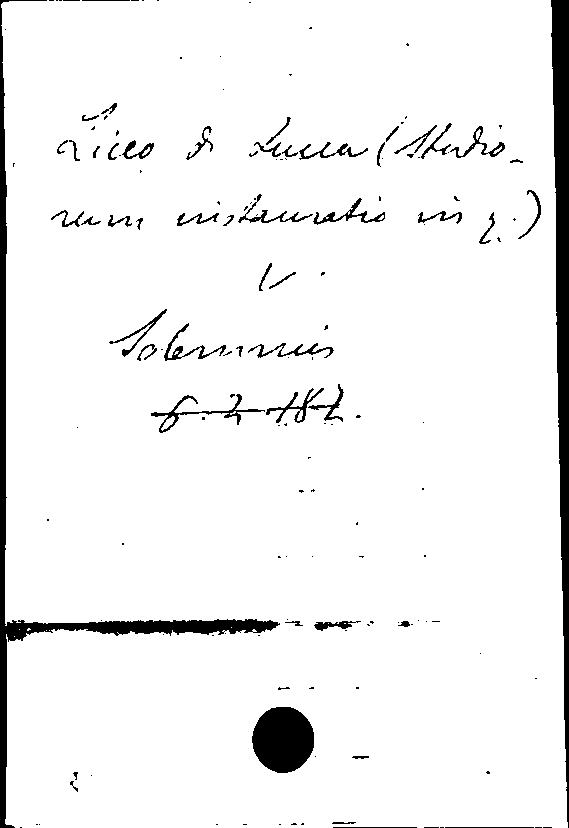 Liceo di Lucca (Studio-
rum instauratio in q.)
V.
Solemnis
6. 2. 182.